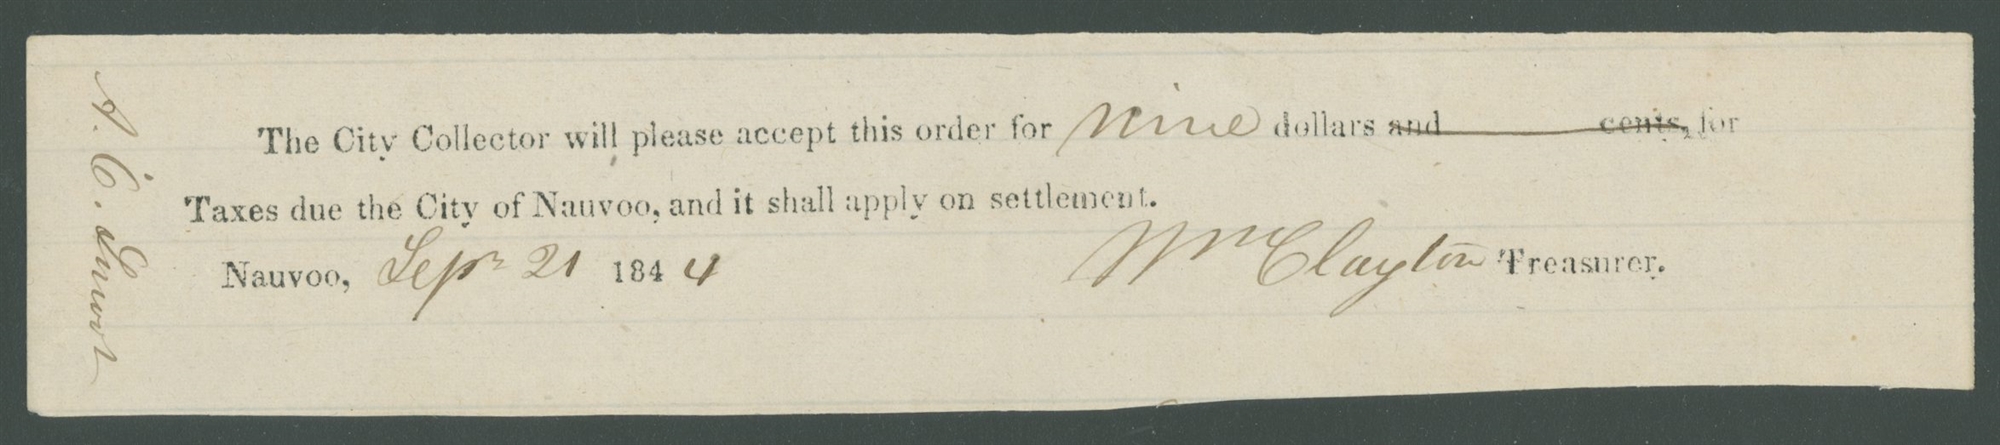 A. C. Smoot
The City Collector will please accept this order for nine dollars and cents, for
Taxes due the City of Nauvoo, and it shall apply on settlement.
Nauvoo, Sepr 21 1844 Wm Clayton Treasurer.